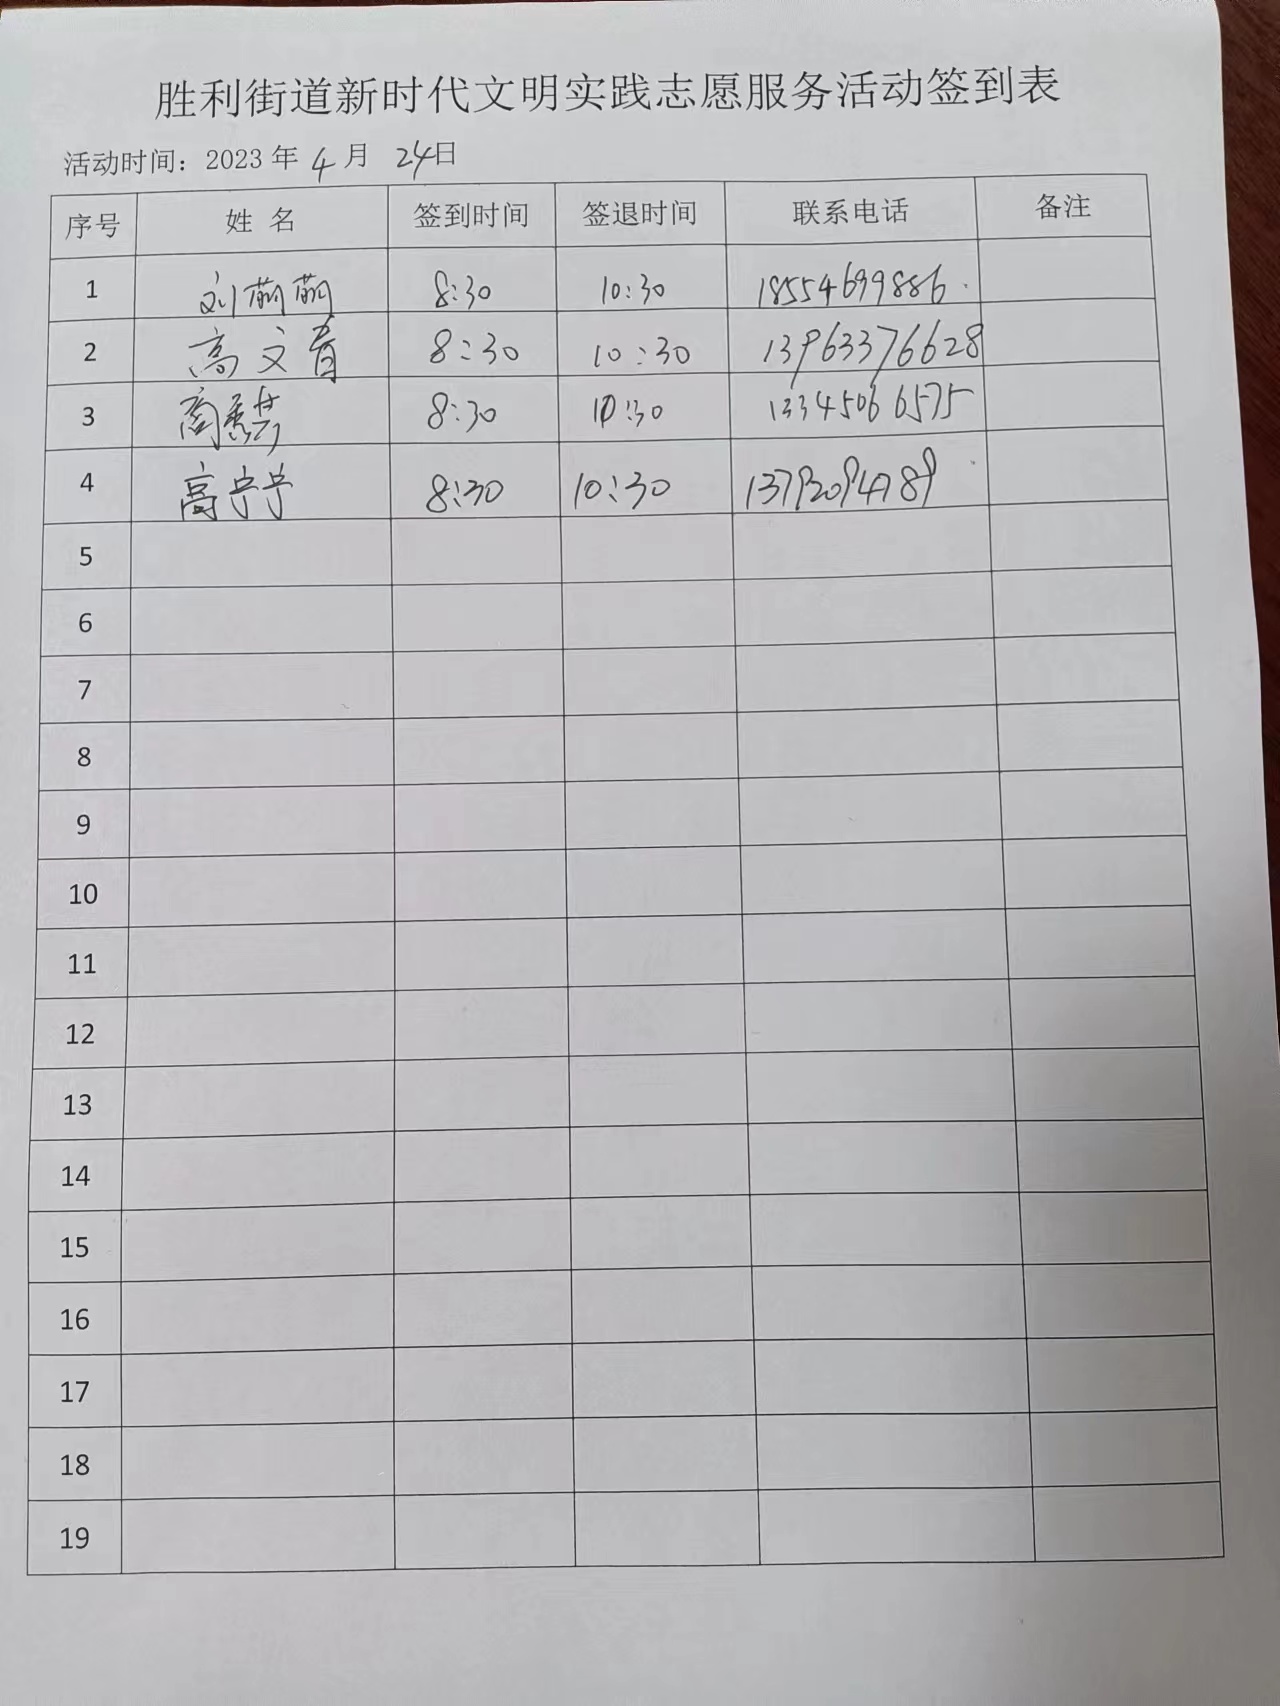 胜利街道新时代文明实践志愿服务活动签到表
活动时间：2023 年 4 月 24日
序号 姓 名 签到时间 签退时间 联系电话 备注
1 刘萌萌 8:30 10:30 18554699886
2 高文 8:30 10:30 13963376628
3 8:30 10:30 13345066575
4 高宁宁 8:30 10:30 13792094789
5
6
7
8
9
10
11
12
13
14
15
16
17
18
19